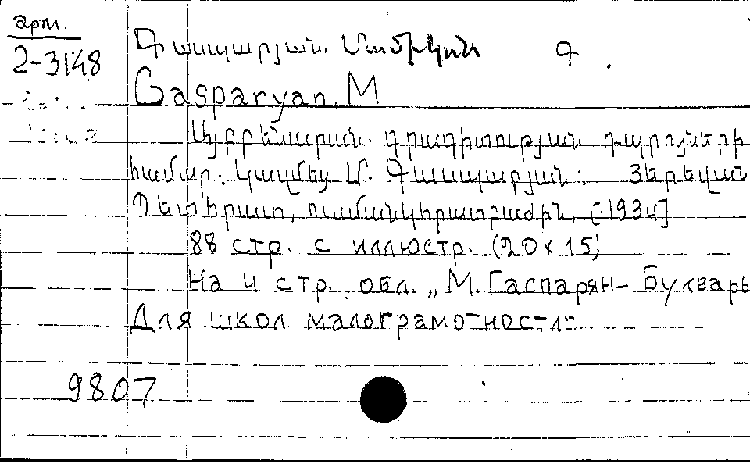 арм.
2-3148
Գասպարյան Մամիկոն Գ.
Gasparyan, M
Այբբենարան գրագիտության դպրոցների
համար. կազմեց Մ. Գասպարյան: Յերեվան
Պետհրատ, [193
88 стр. с иллюстр. (20 x 15)
На и стр. обл. „М. Гаспарян- Букварь
Для школ малограмотности:
9807